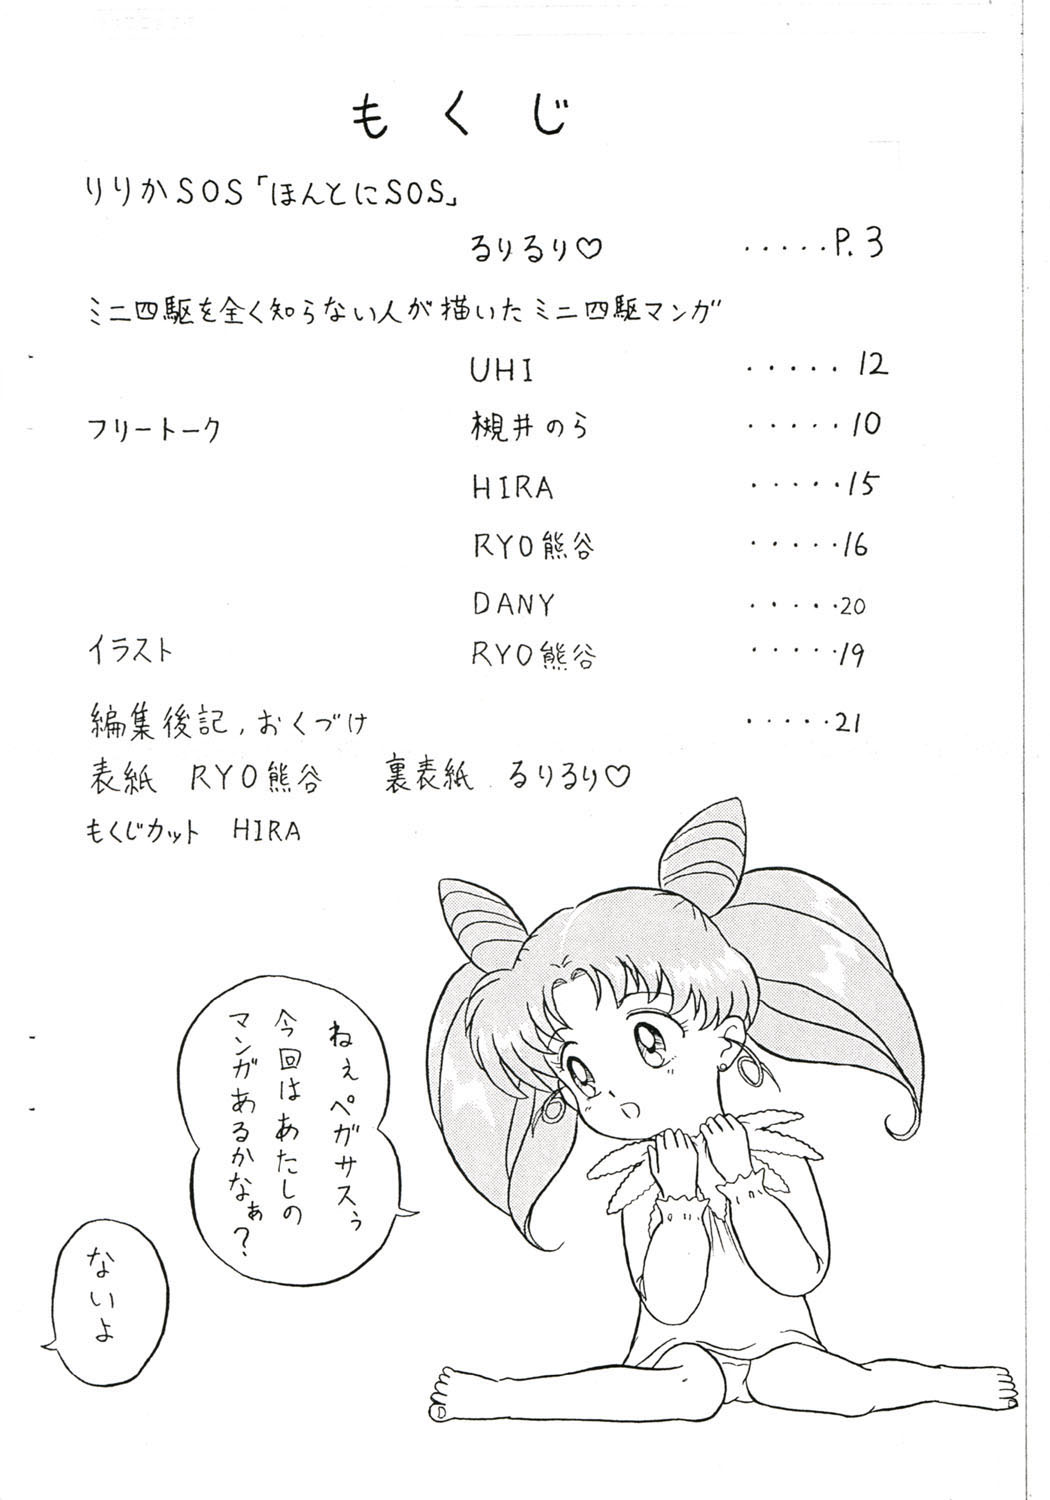 もくじ
りりかSOS「ほんとにSOS」
るりるり♡ ・・・・・P.3
ミニ四駆を全く知らない人が描いたミニ四駆マンガ
UHI ・・・・・12
フリートーク 槻井のら ・・・・・10
HIRA ・・・・・15
RYO熊谷 ・・・・・16
DANY ・・・・・20
イラスト RYO熊谷 ・・・・・19
編集後記,おくづけ ・・・・・21
表紙 RYO熊谷 裏表紙 るりるり♡
もくじカット HIRA
ねぇペガサスぅ
今回はあたしの
マンガあるかなぁ?
ないよ